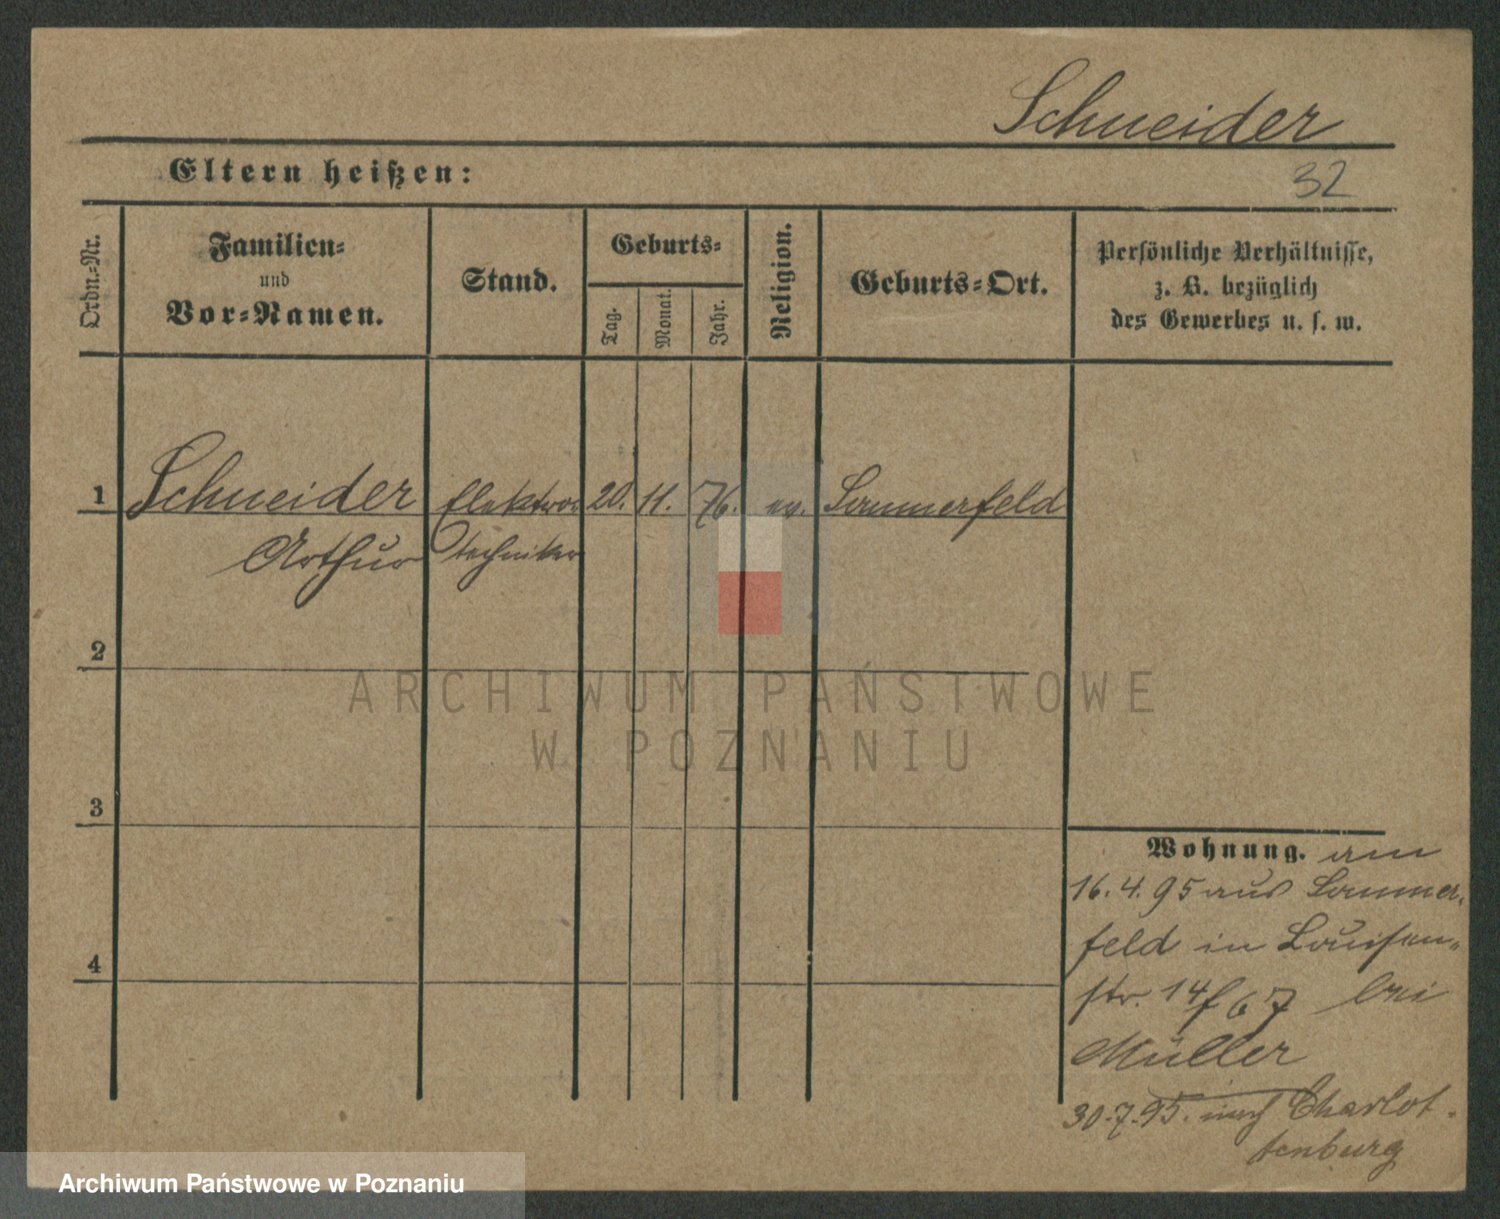 Schneider
Eltern heißen:
32
Ordn.-Nr.
Familien-
und
Vor-Namen.
Stand.
Geburts-
Tag.
Monat.
Jahr.
Religion.
Geburts-Ort.
Persönliche Verhältnisse,
z. B. bezüglich
des Gewerbes u. s. w.
1 Schneider Elektro- 20. 11. 76. ev. Sommerfeld
Arthur techniker
2
ARCHIWUM PAŃSTWOWE
W POZNANIU
3
Wohnung. am
16. 4. 95 aus Sommer-
feld in Louisen-
4
str. 14 67 bei
Müller
30.7.95. nach Charlot-
tenburg
Archiwum Państwowe w Poznaniu